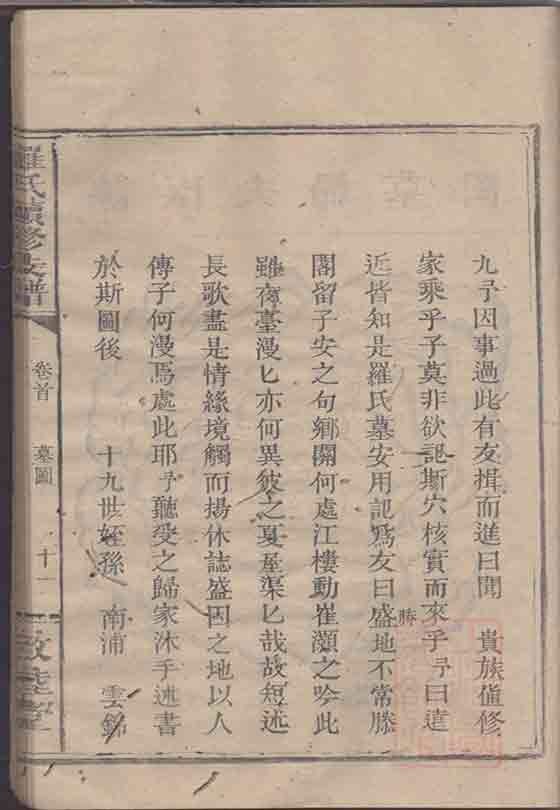 九予因事過此有友揖而進曰聞 貴族值修
家乘乎子莫非欲誌斯穴核實而來乎予曰遠
近皆知是羅氏墓安用記為友曰盛地不常勝
閣留子安之句鄉關何處江樓動崔灝之吟此
雖夜臺漫匕亦何異彼之夏屋渠匕哉故短述
長歌盡是情緣境觸而揚休誌盛因之地以人
傳子何漫焉處此耶予聽受之歸家沐手述書
於斯圖後 十九世姪孫 南浦 雲錦
羅氏續修支譜
卷首 墓圖 十一
敦睦堂